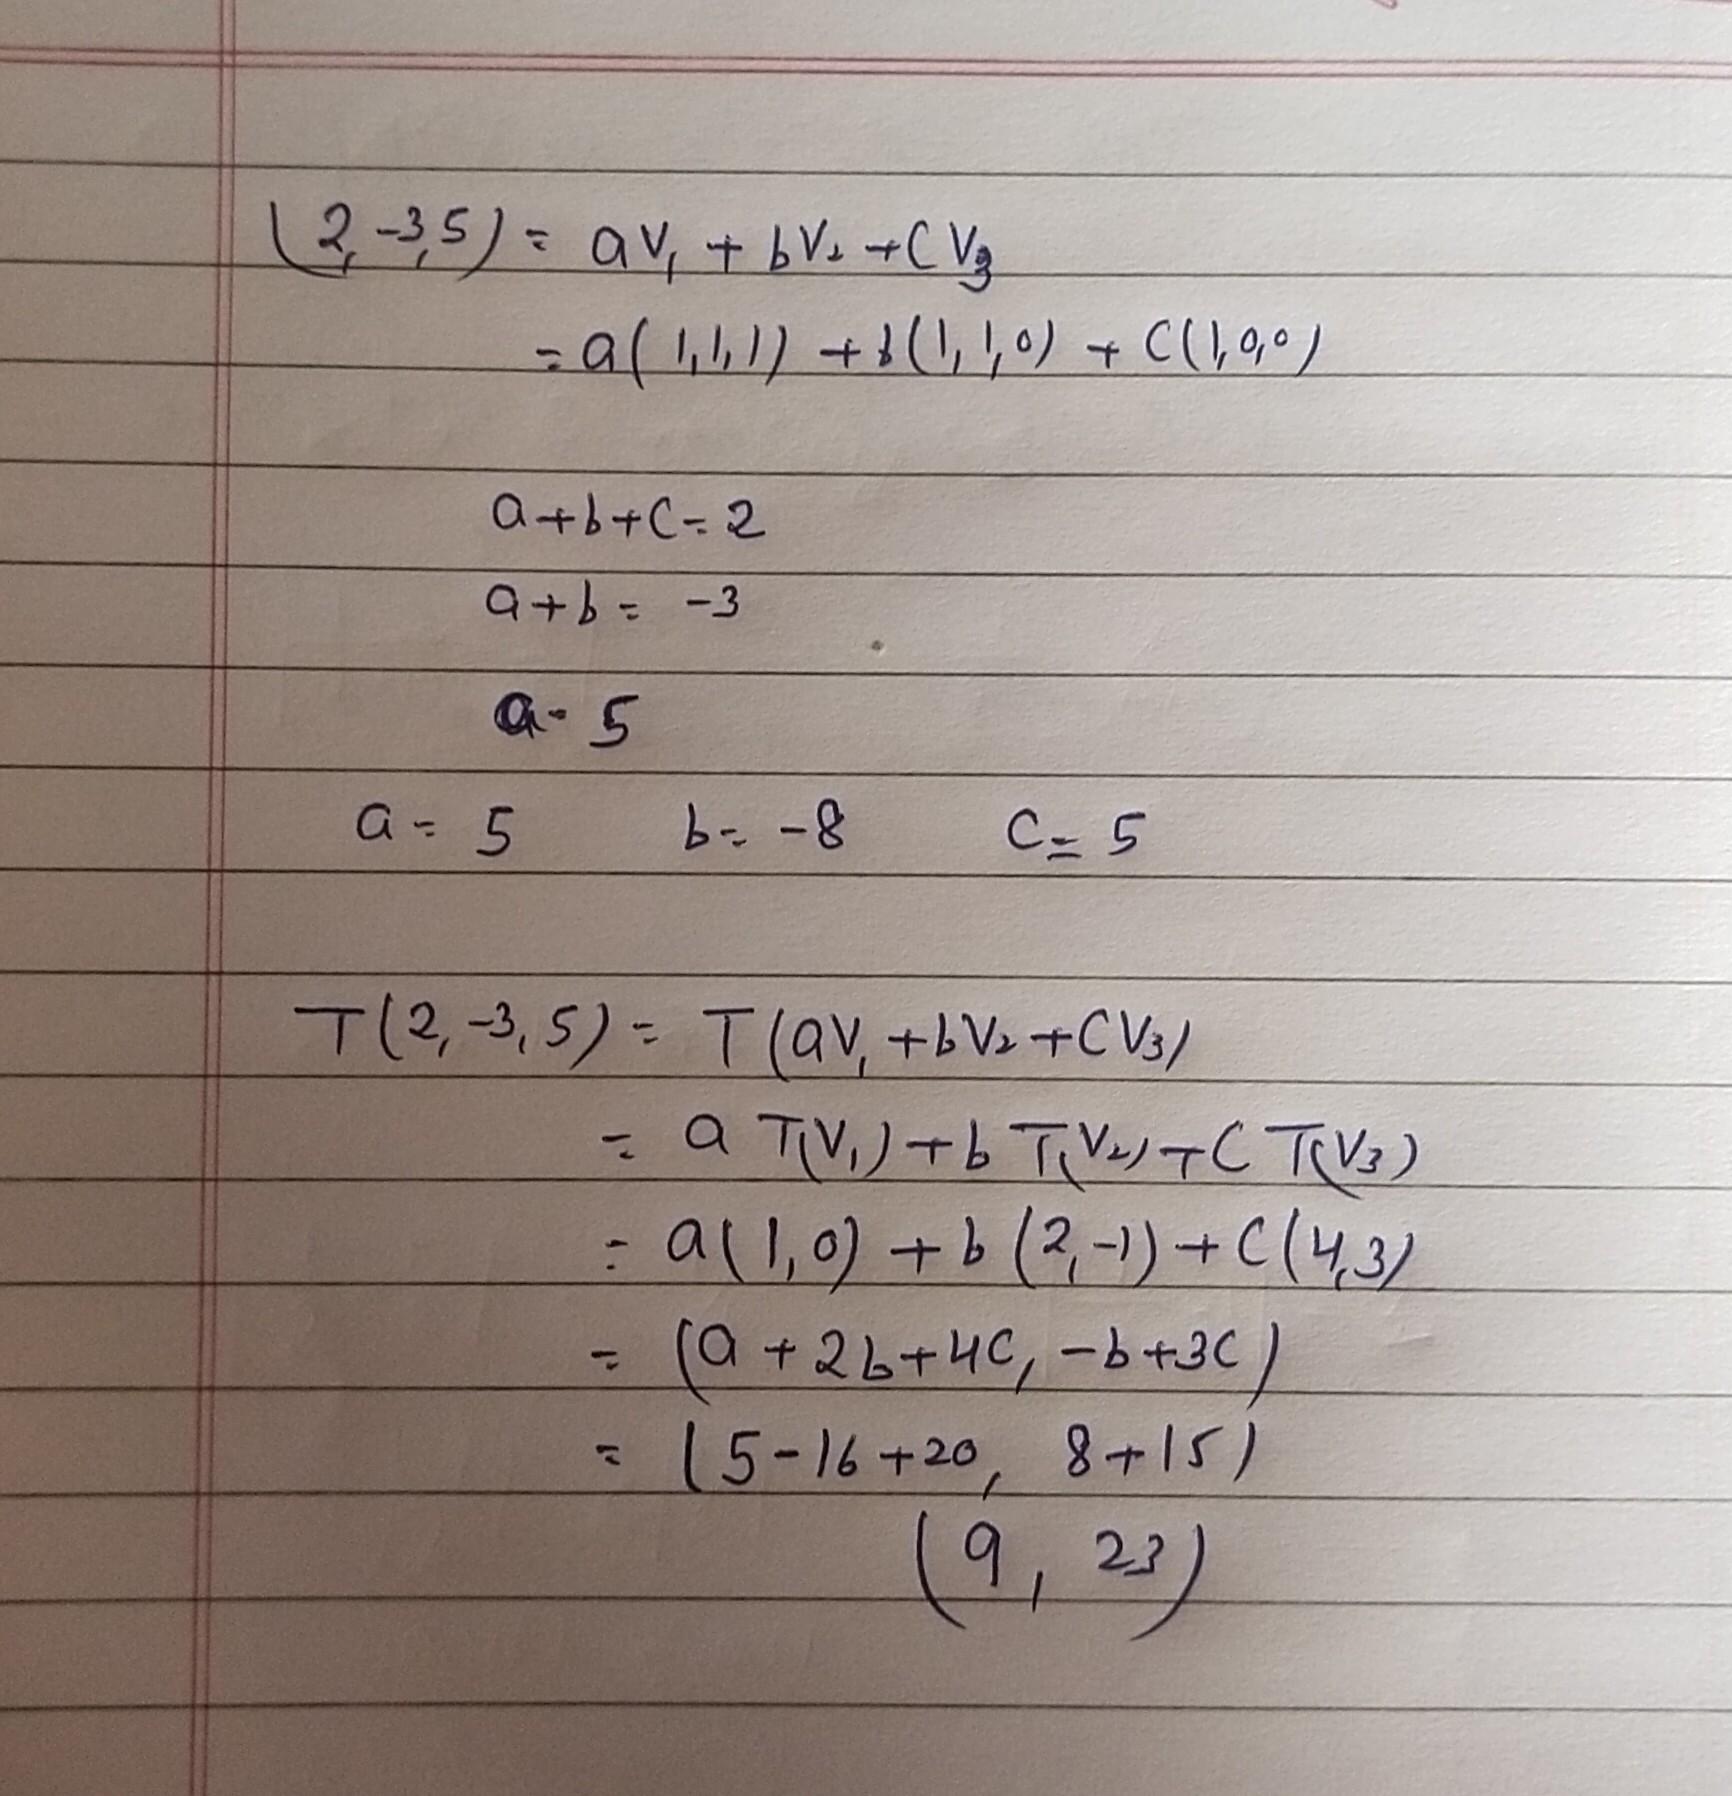 (2, -3, 5) = aV₁ + bV₂ + CV₃
= a(1,1,1) + b(1,1,0) + C(1,0,0)
a+b+C = 2
a+b = -3
a = 5
a = 5 b = -8 C = 5
T(2, -3, 5) = T(aV₁ + bV₂ + CV₃)
= a T(V₁) + b T(V₂) + C T(V₃)
= a(1,0) + b(2,-1) + C(4,3)
= (a + 2b + 4C, -b+3C)
= (5-16+20, 8+15)
(9, 23)